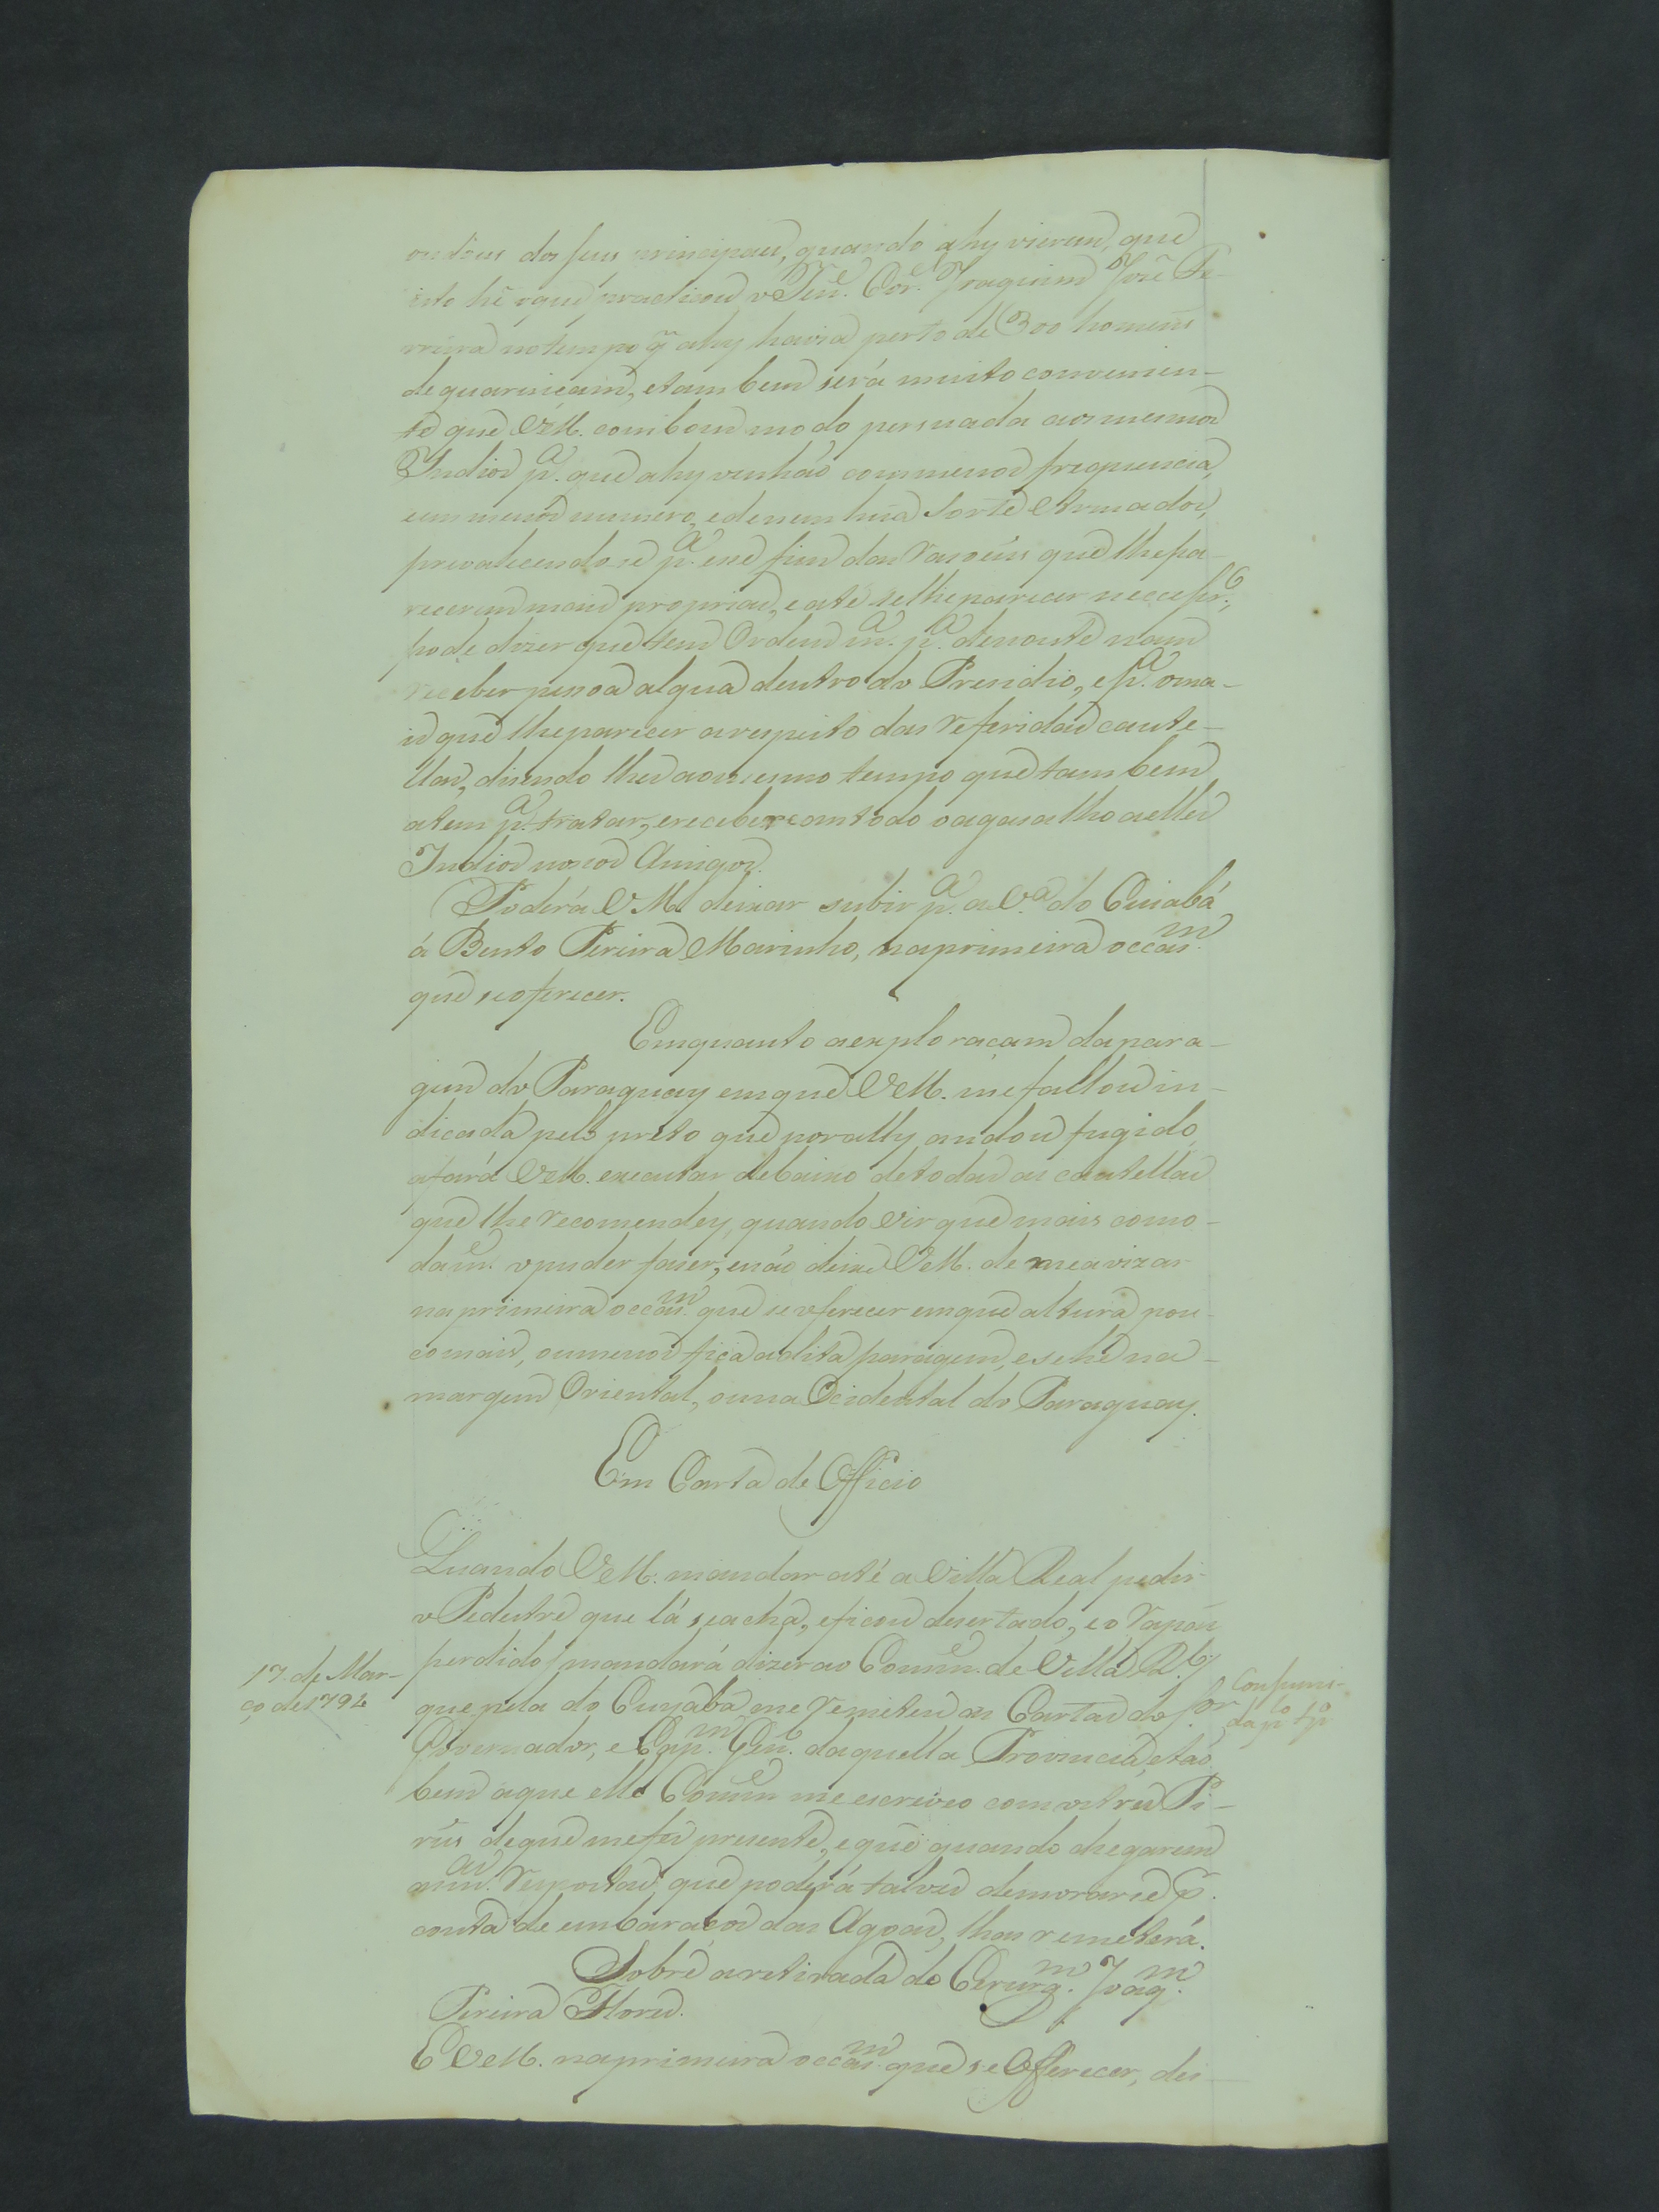 ou dous dos seus principaes, quando ahy vierem, que
isto hé o que praticou o Tene. Cor.el Joaquim José Fe-
rreira no tempo q̃ ahy havia perto de 300 homens
de guarniçam, e tambem será muito convenien-
te que VM. com bom modo persuada aos mesmos
Indios p.a que ahy venhão com menos frequencia,
em menor numero, e de nenhuã sorte Armados,
prevalecendo se p.a esse fim das rasoens que lhe pa-
recerem mais proprias, e até se lhe parecer necessr.o,
pode dizer que tem Ordem m.a p.a de noute nam
receber pessoa algua dentro do Presidio, e p.a o ma-
is que lhe parecer a respeito das referidas caute-
llas, disendo lhes ao mesmo tempo que tambem
a tem p.a tratar, e receber com todo o agasalho aelles
Indios nossos Amigos.
Poderá VM. deixar subir p.a a V.a do Cuiabá
á Bento Pereira Marinho, na primeira occas.m
que se oferecer.
Emquanto a exploraçam da para-
gem do Paraguay em que VM. me fallou in-
dicada pelo preto que por ally andou fugido,
a fará VM. executar debaixo de todas as cautellas
que lhe recomendey, quando vir que mais como-
dam.e o puder faser, e não deixe VM. de me avizar
na primeira occas.m que se oferecer em que altura pou-
co mais, ou menos fica a dita paragem, e se hé na
margem Oriental, ou na Ocidental do Paraguay.
Em Carta de Officio
17 de Mar-
ço de 1794
Quando VM. mandar até a Villa Real pedir
o Pedestre que lá se acha, e ficou desertado, e o rapás
perdido, mandará dizer ao Comm.e de Villa R.l,
que pela do Cuyabá me remeteu as Cartas do Sor.
Governador, e Cap.m Gen. daquella Provincia, e tão
bem a que elle Comm.e me escreveo com os tres Pi-
res de que me fez presente, e que quando chegarem
as m.as respostas, que poderá talvez demorarse p.r
conta de embaraços das Agoas, lhas remeterá.
Sobre a retirada do Cirurg.m Joaq.m
Pereira Flores.
E VM. na primeira occas.m que se Offerecer, dei-
Consumi-
da p.lo tp.o